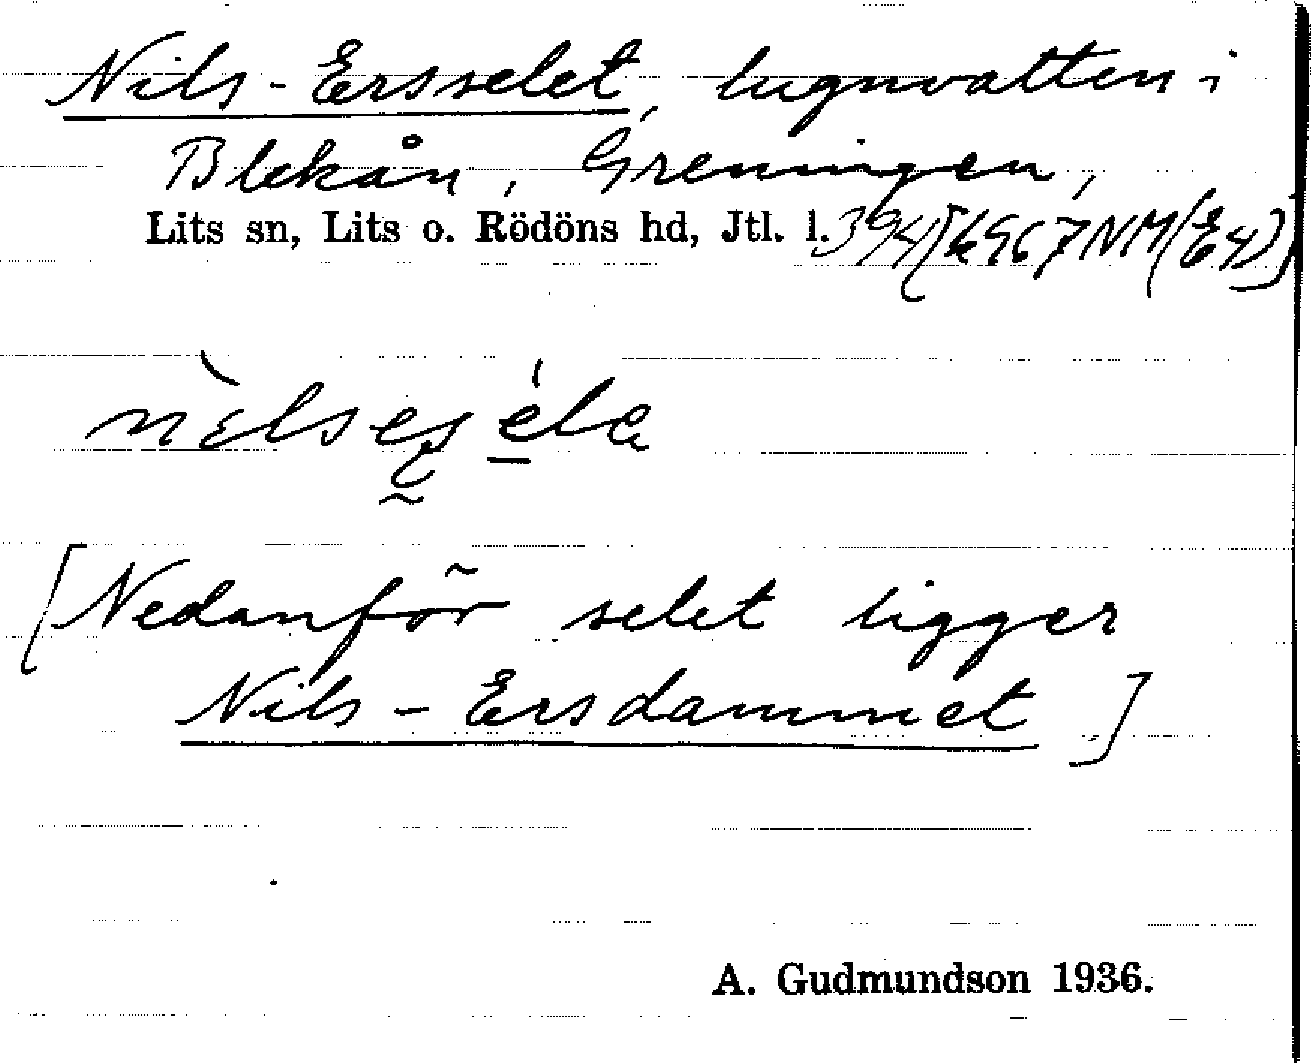 Nils-Ersselet, lugnvatten i
Blekån, Greningen,
Lits sn, Lits o. Rödöns hd, Jtl. l.
[Nedanför selet ligger
Nils-Ersdammet]
A. Gudmundson 1936.